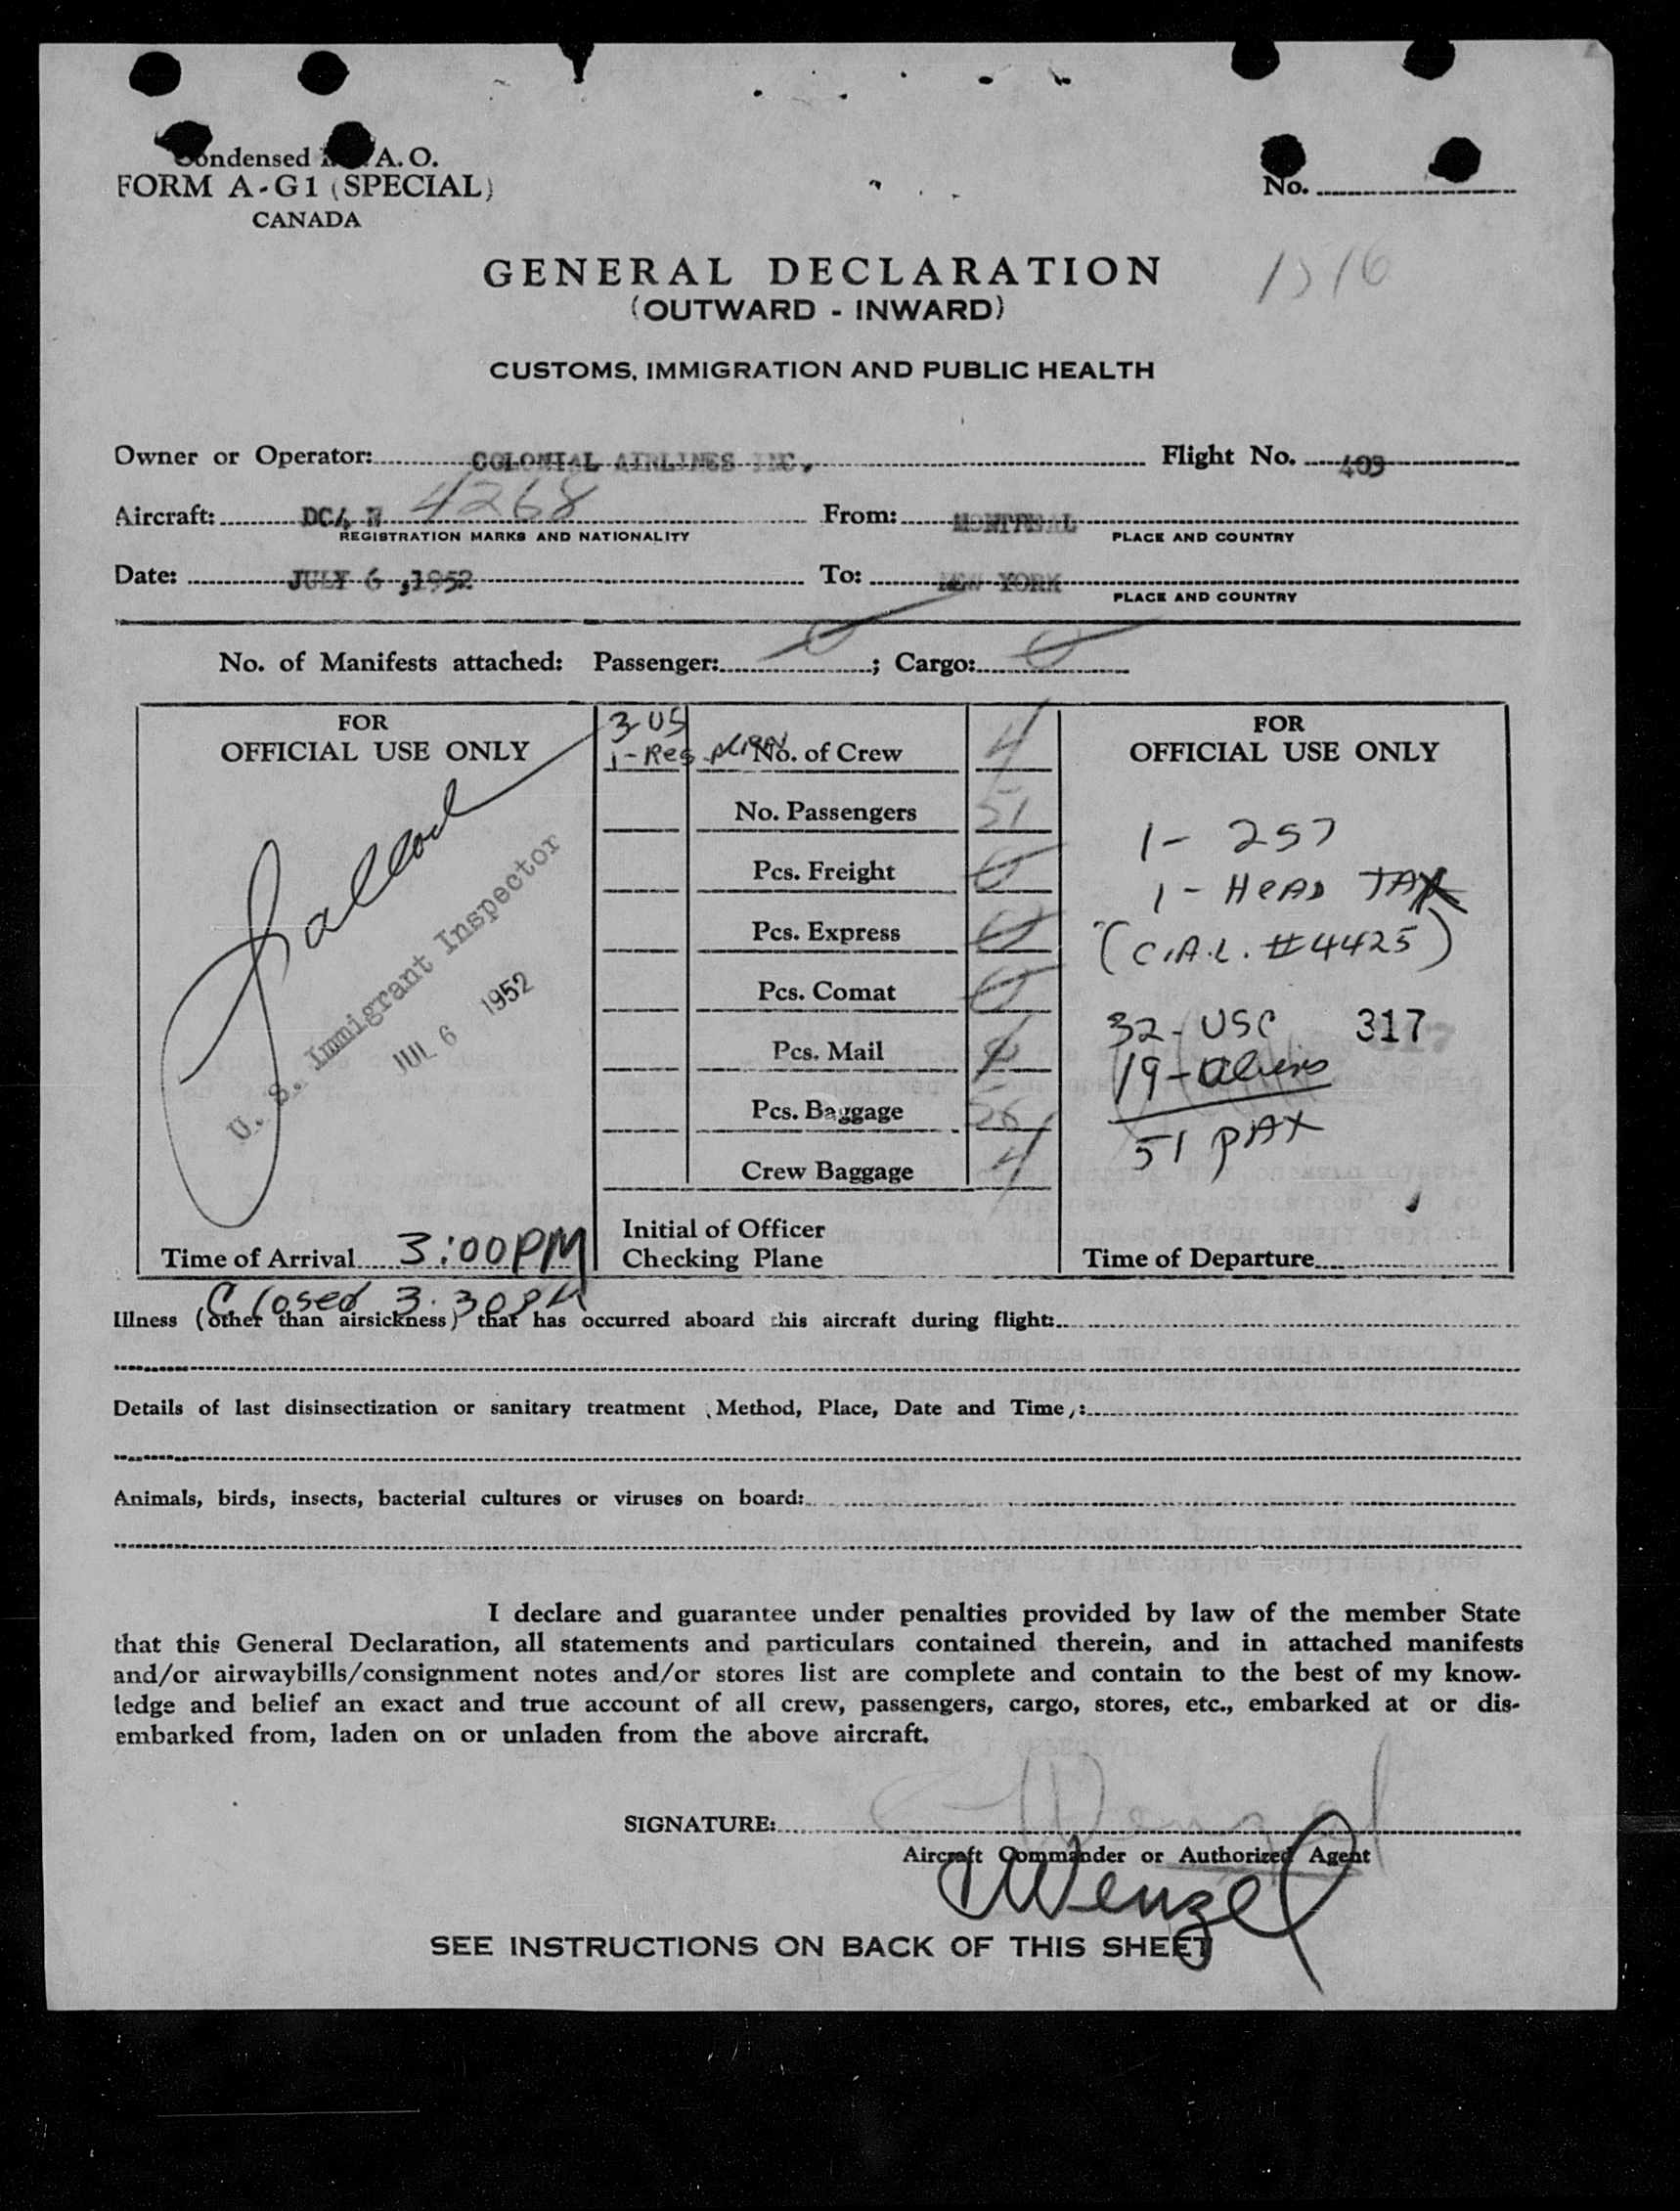 Condensed A. O.
FORM A-G1 (SPECIAL)
CANADA
No.
GENERAL DECLARATION
(OUTWARD - INWARD)
CUSTOMS, IMMIGRATION AND PUBLIC HEALTH
Owner or Operator: COLONIAL AIRLINES INC, Flight No. 409
Aircraft: DC4 N 4268 From: MONTREAL
REGISTRATION MARKS AND NATIONALITY PLACE AND COUNTRY
Date: JULY 6 ,1952 To: NEW YORK
PLACE AND COUNTRY
No. of Manifests attached: Passenger: 0; Cargo: 0
FOR
OFFICIAL USE ONLY
U. S. Immigrant Inspector
JUL 6 1952
Time of Arrival 3:00 PM
Closed 3:30 PM
3 US
1-Res Alien
No. of Crew 4
No. Passengers 51
Pcs. Freight 0
Pcs. Express 0
Pcs. Comat 0
Pcs. Mail
Pcs. Baggage
Crew Baggage 4
Initial of Officer
Checking Plane
FOR
OFFICIAL USE ONLY
1- 257
1- HEAD TAX
(C.A.L. #4425)
32- USC 317
19- aliens
51 PAX
Time of Departure
Illness (other than airsickness) that has occurred aboard this aircraft during flight:
Details of last disinsectization or sanitary treatment (Method, Place, Date and Time):
Animals, birds, insects, bacterial cultures or viruses on board:
I declare and guarantee under penalties provided by law of the member State
that this General Declaration, all statements and particulars contained therein, and in attached manifests
and/or airwaybills/consignment notes and/or stores list are complete and contain to the best of my know-
ledge and belief an exact and true account of all crew, passengers, cargo, stores, etc., embarked at or dis-
embarked from, laden on or unladen from the above aircraft.
SIGNATURE: Wenzel
Aircraft Commander or Authorized Agent
Wenzel
SEE INSTRUCTIONS ON BACK OF THIS SHEET